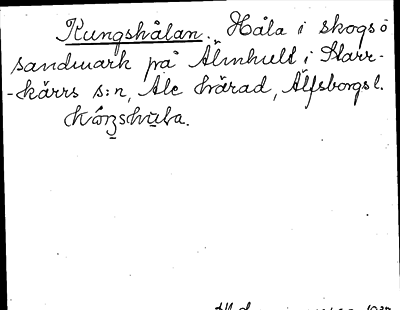 Kungshålan. Håla i skogsö
sandmark på Älmhult i Starr-
-kärrs s:n, Ale härad, Älfsborgs l.